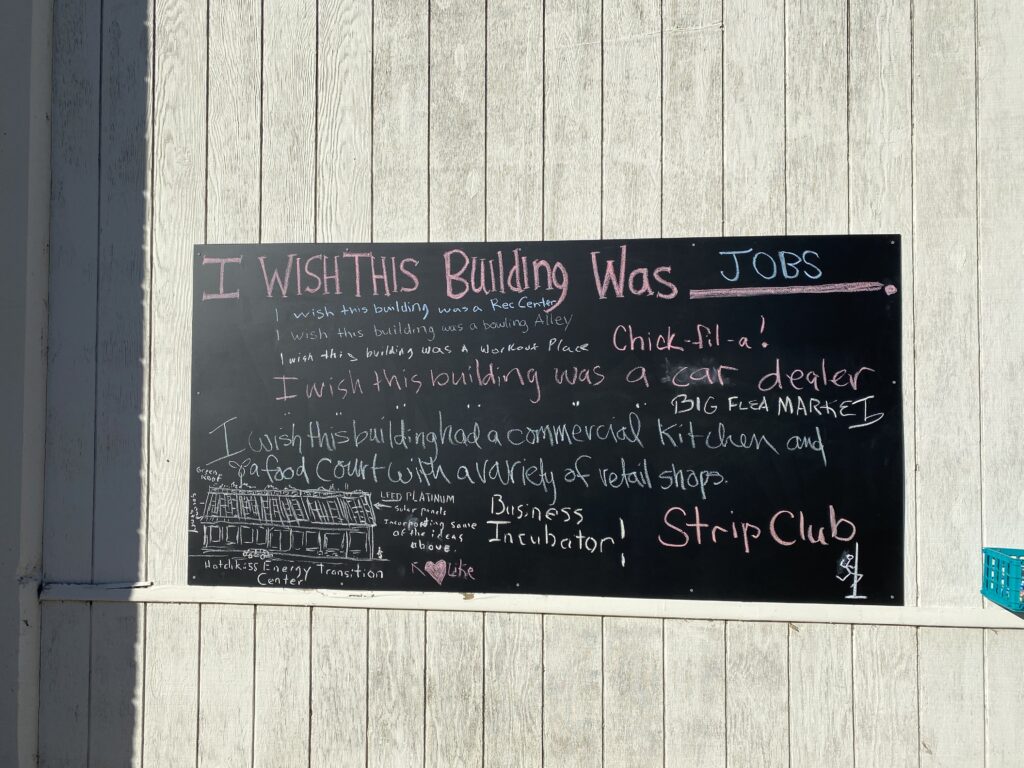 I WISH THIS Building Was JOBS
I wish this building was a Rec Center
I wish this building was a bowling Alley
I wish this building was a workout Place
Chick-fil-a!
I wish this building was a car dealer
BIG FLEA MARKET
I wish this building had a commercial kitchen and
a food court with a variety of retail shops.
Green
Roof
LEED PLATINUM
Solar panels
Incorporating some
of the ideas
above.
Hotchkiss Energy Transition
Center
Like
Business
Incubator!
Strip Club